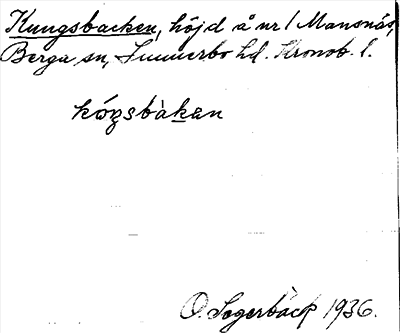 Kungsbacken, höjd å nr 1 Mansnäs,
Berga sn, Sunnerbo hd. Kronob. l.
kóŋsbàkan
O. Segerbäck 1936.